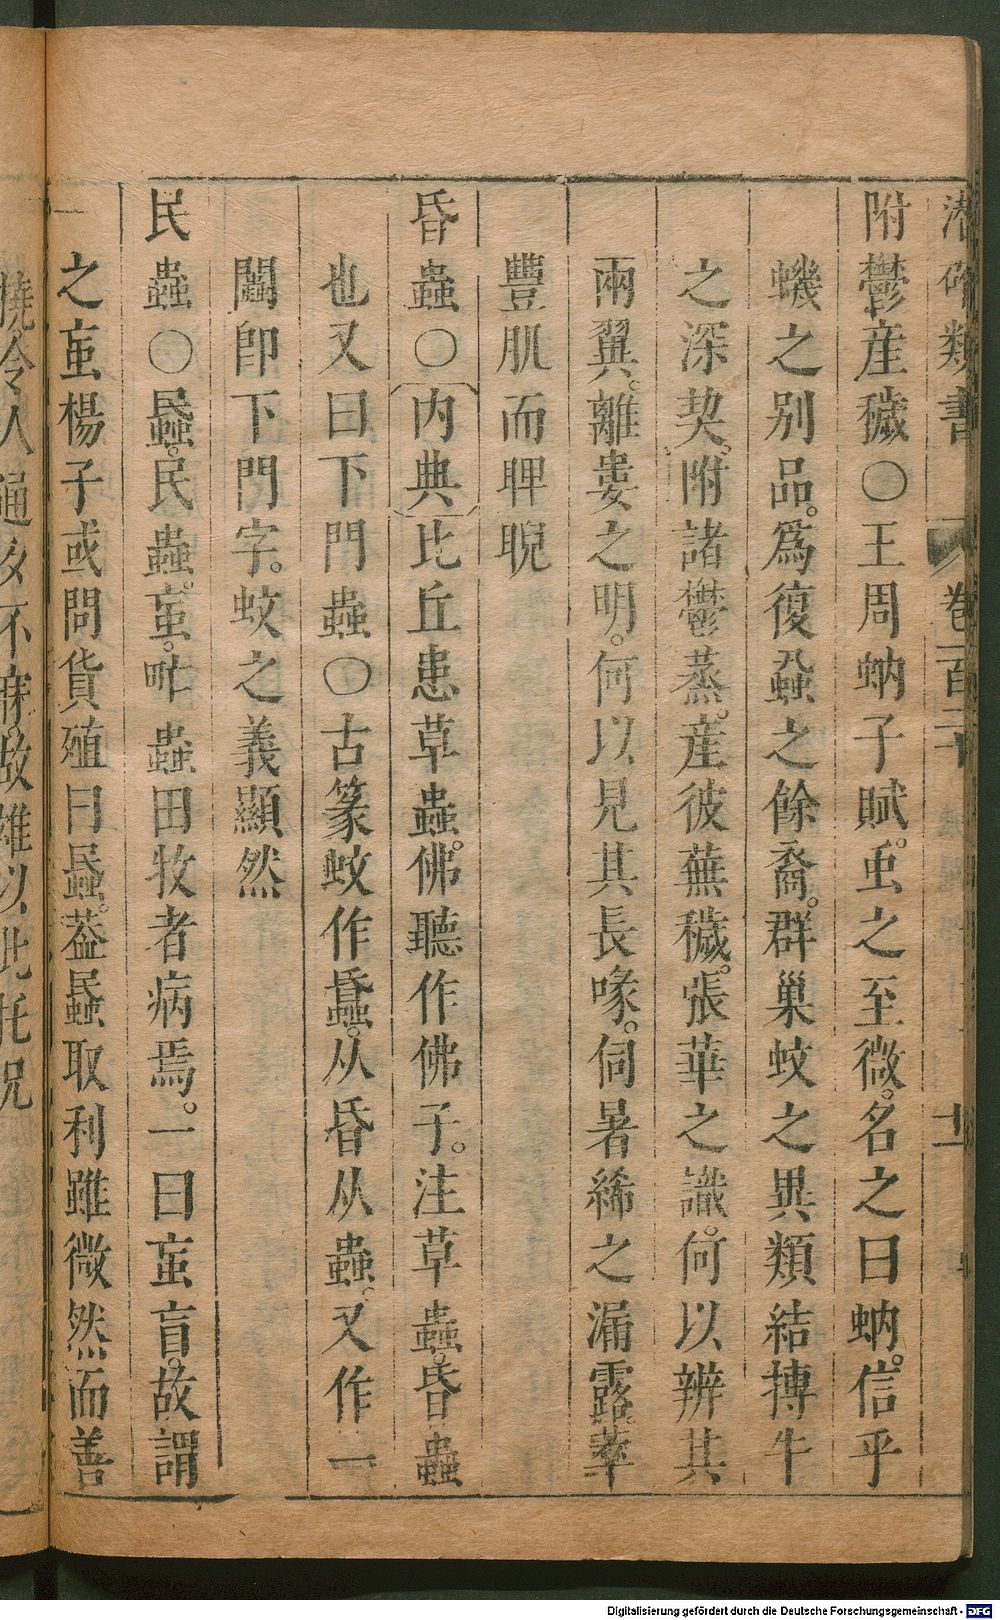 潛確類書 卷一百二十 十二
附鬱産穢○王周蚋子賦。䖝之至微。名之曰蚋。信乎
蟣之别品。爲復蝨之餘裔。群巢蚊之異類結摶牛
之深契。附諸鬱蒸。産彼蕪穢。張華之識。何以辨其
兩翼。離婁之明。何以見其長喙。伺暑絺之漏露。萃
豐肌而睥睨
昏蟲○内典比丘患草蟲。佛聽作佛子。注草蟲。昏蟲
也又曰下門蟲○古篆蚊作蟁。从昏从蟲。又作一
闖卽下門字。蚊之義顯然
民蟲○蟁。民蟲。䖟。甿蟲田牧者病焉。一曰䖟盲。故謂
之䖟楊子或問貨殖曰蟁。葢蟁取利雖微然而善
撓令人通夕不寐。故雄以此托况
Digitalisierung gefördert durch die Deutsche Forschungsgemeinschaft - DFG